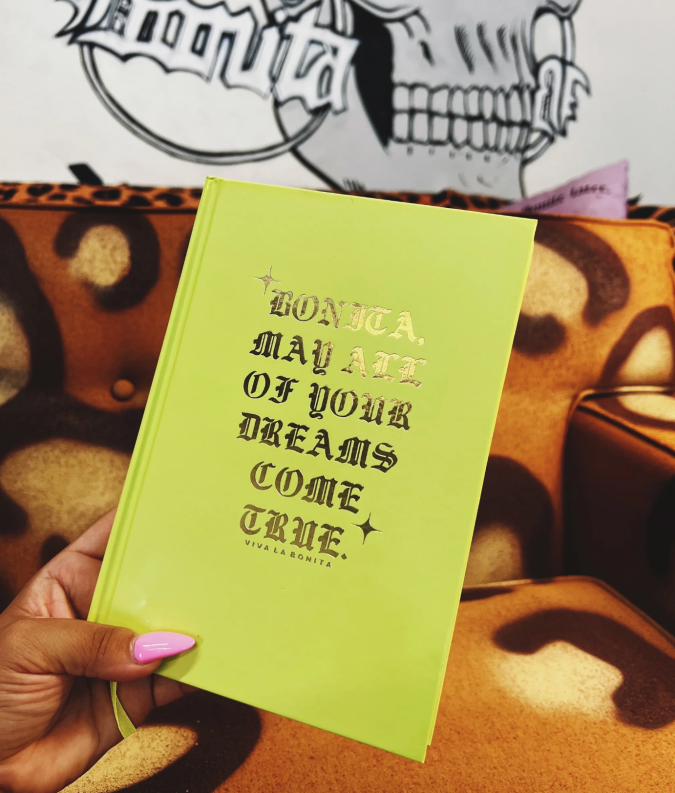 Bonita
BONITA,
MAY ALL
OF YOUR
DREAMS
COME
TRUE.
VIVA LA BONITA